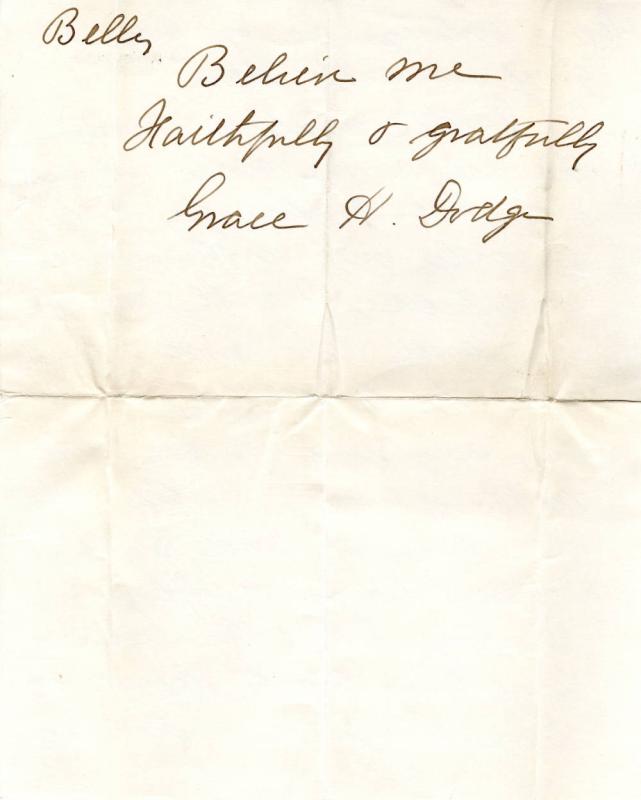 Belly
Believe me
Faithfully & gratfully
Grace H. Dodge